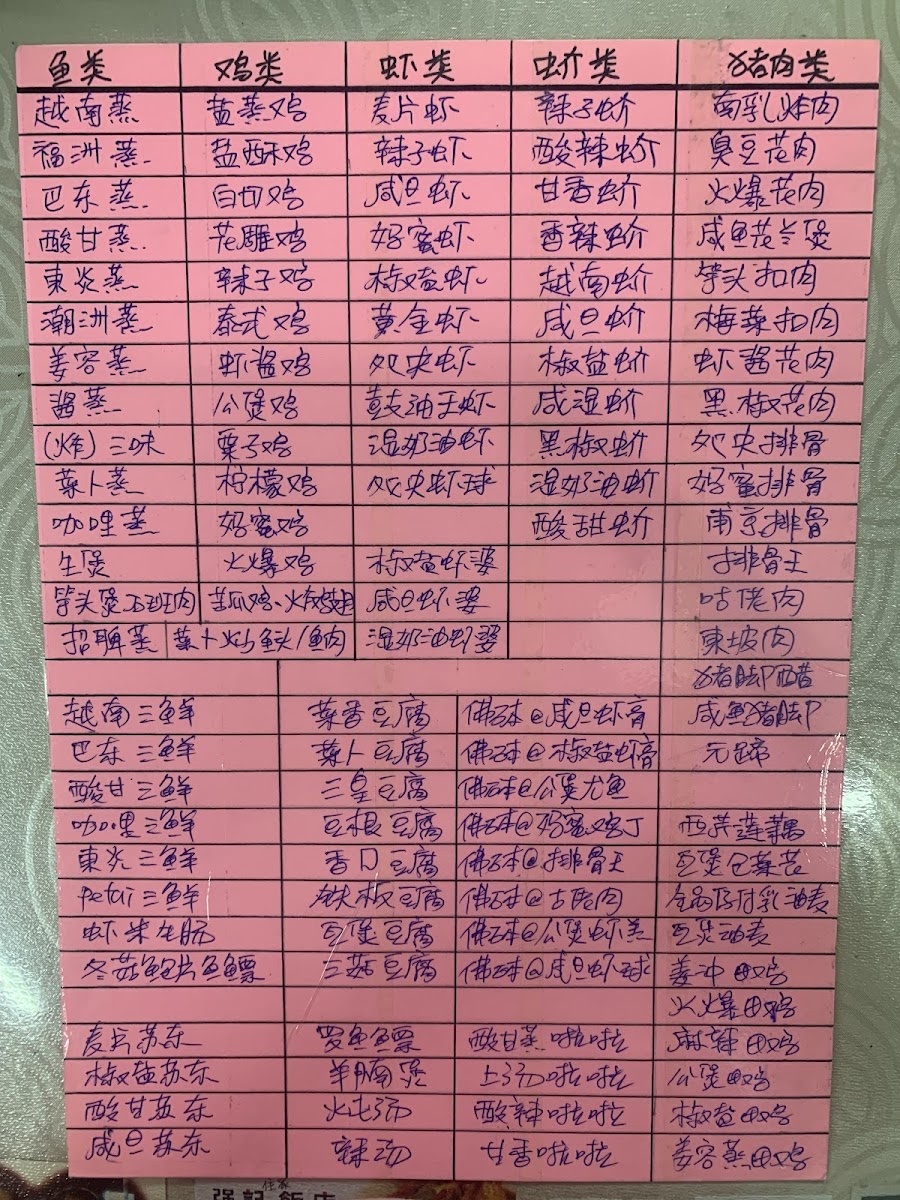 鱼类 鸡类 虾类 蚧类 猪肉类
越南蒸 盐蒸鸡 麦片虾 辣子蚧 南乳炸肉
福洲蒸 盐酥鸡 辣子虾 酸辣蚧 臭豆花肉
巴东蒸 白切鸡 咸旦虾 甘香蚧 火爆花肉
酸甘蒸 花雕鸡 好蜜虾 香辣蚧 咸鱼花兰煲
東炎蒸 辣子鸡 椒盐虾 越南蚧 芋头扣肉
潮洲蒸 泰式鸡 黄金虾 咸旦蚧 梅菜扣肉
姜容蒸 虾酱鸡 奶央虾 椒盐蚧 虾酱花肉
酱蒸 公煲鸡 鼓油王虾 咸湿蚧 黑椒花肉
(炸)三味 栗子鸡 湿奶油虾 黑椒蚧 奶央排骨
菜卜蒸 柠檬鸡 奶央虾球 湿奶油蚧 好蜜排骨
咖哩蒸 好蜜鸡 酸甜蚧 南京排骨
生煲 火爆鸡 椒盐虾婆 排骨王
芋头煲石班肉 苦瓜鸡、火腩 咸旦虾婆 咕佬肉
招牌蒸 菜卜炒鱼头/鱼肉 湿奶油虾婆 東坡肉
猪脚醋
越南三鲜 菜香豆腐 佛砵@咸旦虾膏 咸鱼猪脚
巴东三鲜 菜卜豆腐 佛砵@椒盐虾膏 元蹄
酸甘三鲜 三皇豆腐 佛砵@公煲尤鱼
咖哩三鲜 豆根豆腐 佛砵@妈蜜鸡丁 西芹莲藕
東炎三鲜 香口豆腐 佛砵@排骨王 瓦煲包菜花
Petai三鲜 铁板豆腐 佛砵@古佬肉 全炳仔付乳油麦
虾米生肠 瓦煲豆腐 佛砵@公煲虾羔 瓦煲油麦
冬菇鲍片鱼鳔 三菇豆腐 佛砵@咸旦虾球 姜冲田鸡
火爆田鸡
麦片苏东 罗鱼鱼鳔 酸甘蒸啦啦 麻辣田鸡
椒盐苏东 羊腩煲 上汤啦啦 公煲田鸡
酸甘苏东 火屯汤 酸辣啦啦 椒盐田鸡
咸旦苏东 辣汤 甘香啦啦 姜容蒸田鸡
住家
强記飯店